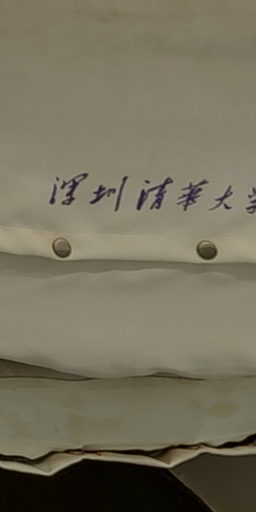 深圳清華大学